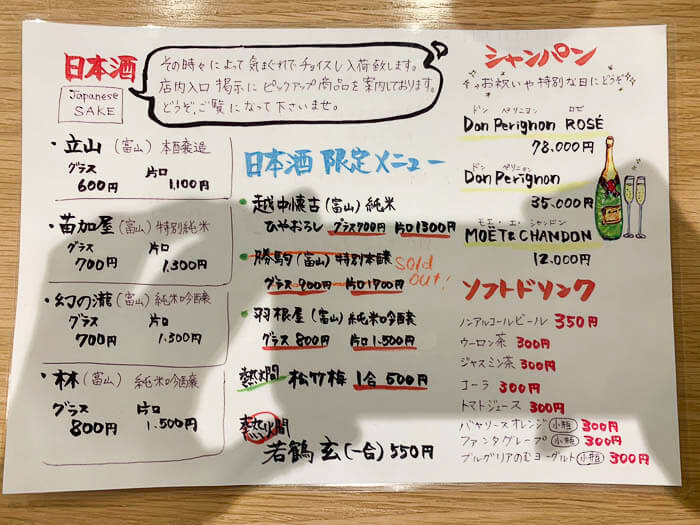 日本酒
Japanese
SAKE
その時々によって気まぐれでチョイスし入荷致します。
店内入口掲示にピックアップ商品を案内しております。
どうぞ、ご覧になって下さいませ。
・立山(富山)本醸造
グラス 片口
600円 1,100円
・苗加屋(富山)特別純米
グラス 片口
700円 1,300円
・幻の瀧(富山)純米吟醸
グラス 片口
700円 1,300円
・林(富山)純米吟醸
グラス 片口
800円 1,500円
日本酒 限定メニュー
・越中懐古(富山)純米
ひやおろし グラス700円 片口1300円
・勝駒(富山)特別本醸
グラス900円 片口1700円
Sold out!
・羽根屋(富山)純米吟醸
グラス800円 片口1,500円
熱燗 松竹梅 1合 500円
熱燗
若鶴 玄(一合)550円
シャンパン
お祝いや特別な日にどうぞ
ドン ペリニヨン ロゼ
Don Perignon ROSÉ
78.000円
ドン ペリニョン
Don Perignon
35.000円
モエ・エ・シャンドン
MOËT & CHANDON
12.000円
ソフトドリンク
ノンアルコールビール 350円
ウーロン茶 300円
ジャスミン茶 300円
コーラ 300円
トマトジュース 300円
バヤリースオレンジ 小瓶 300円
ファンタグレープ 小瓶 300円
ブルグリアのむヨーグルト 小瓶 300円